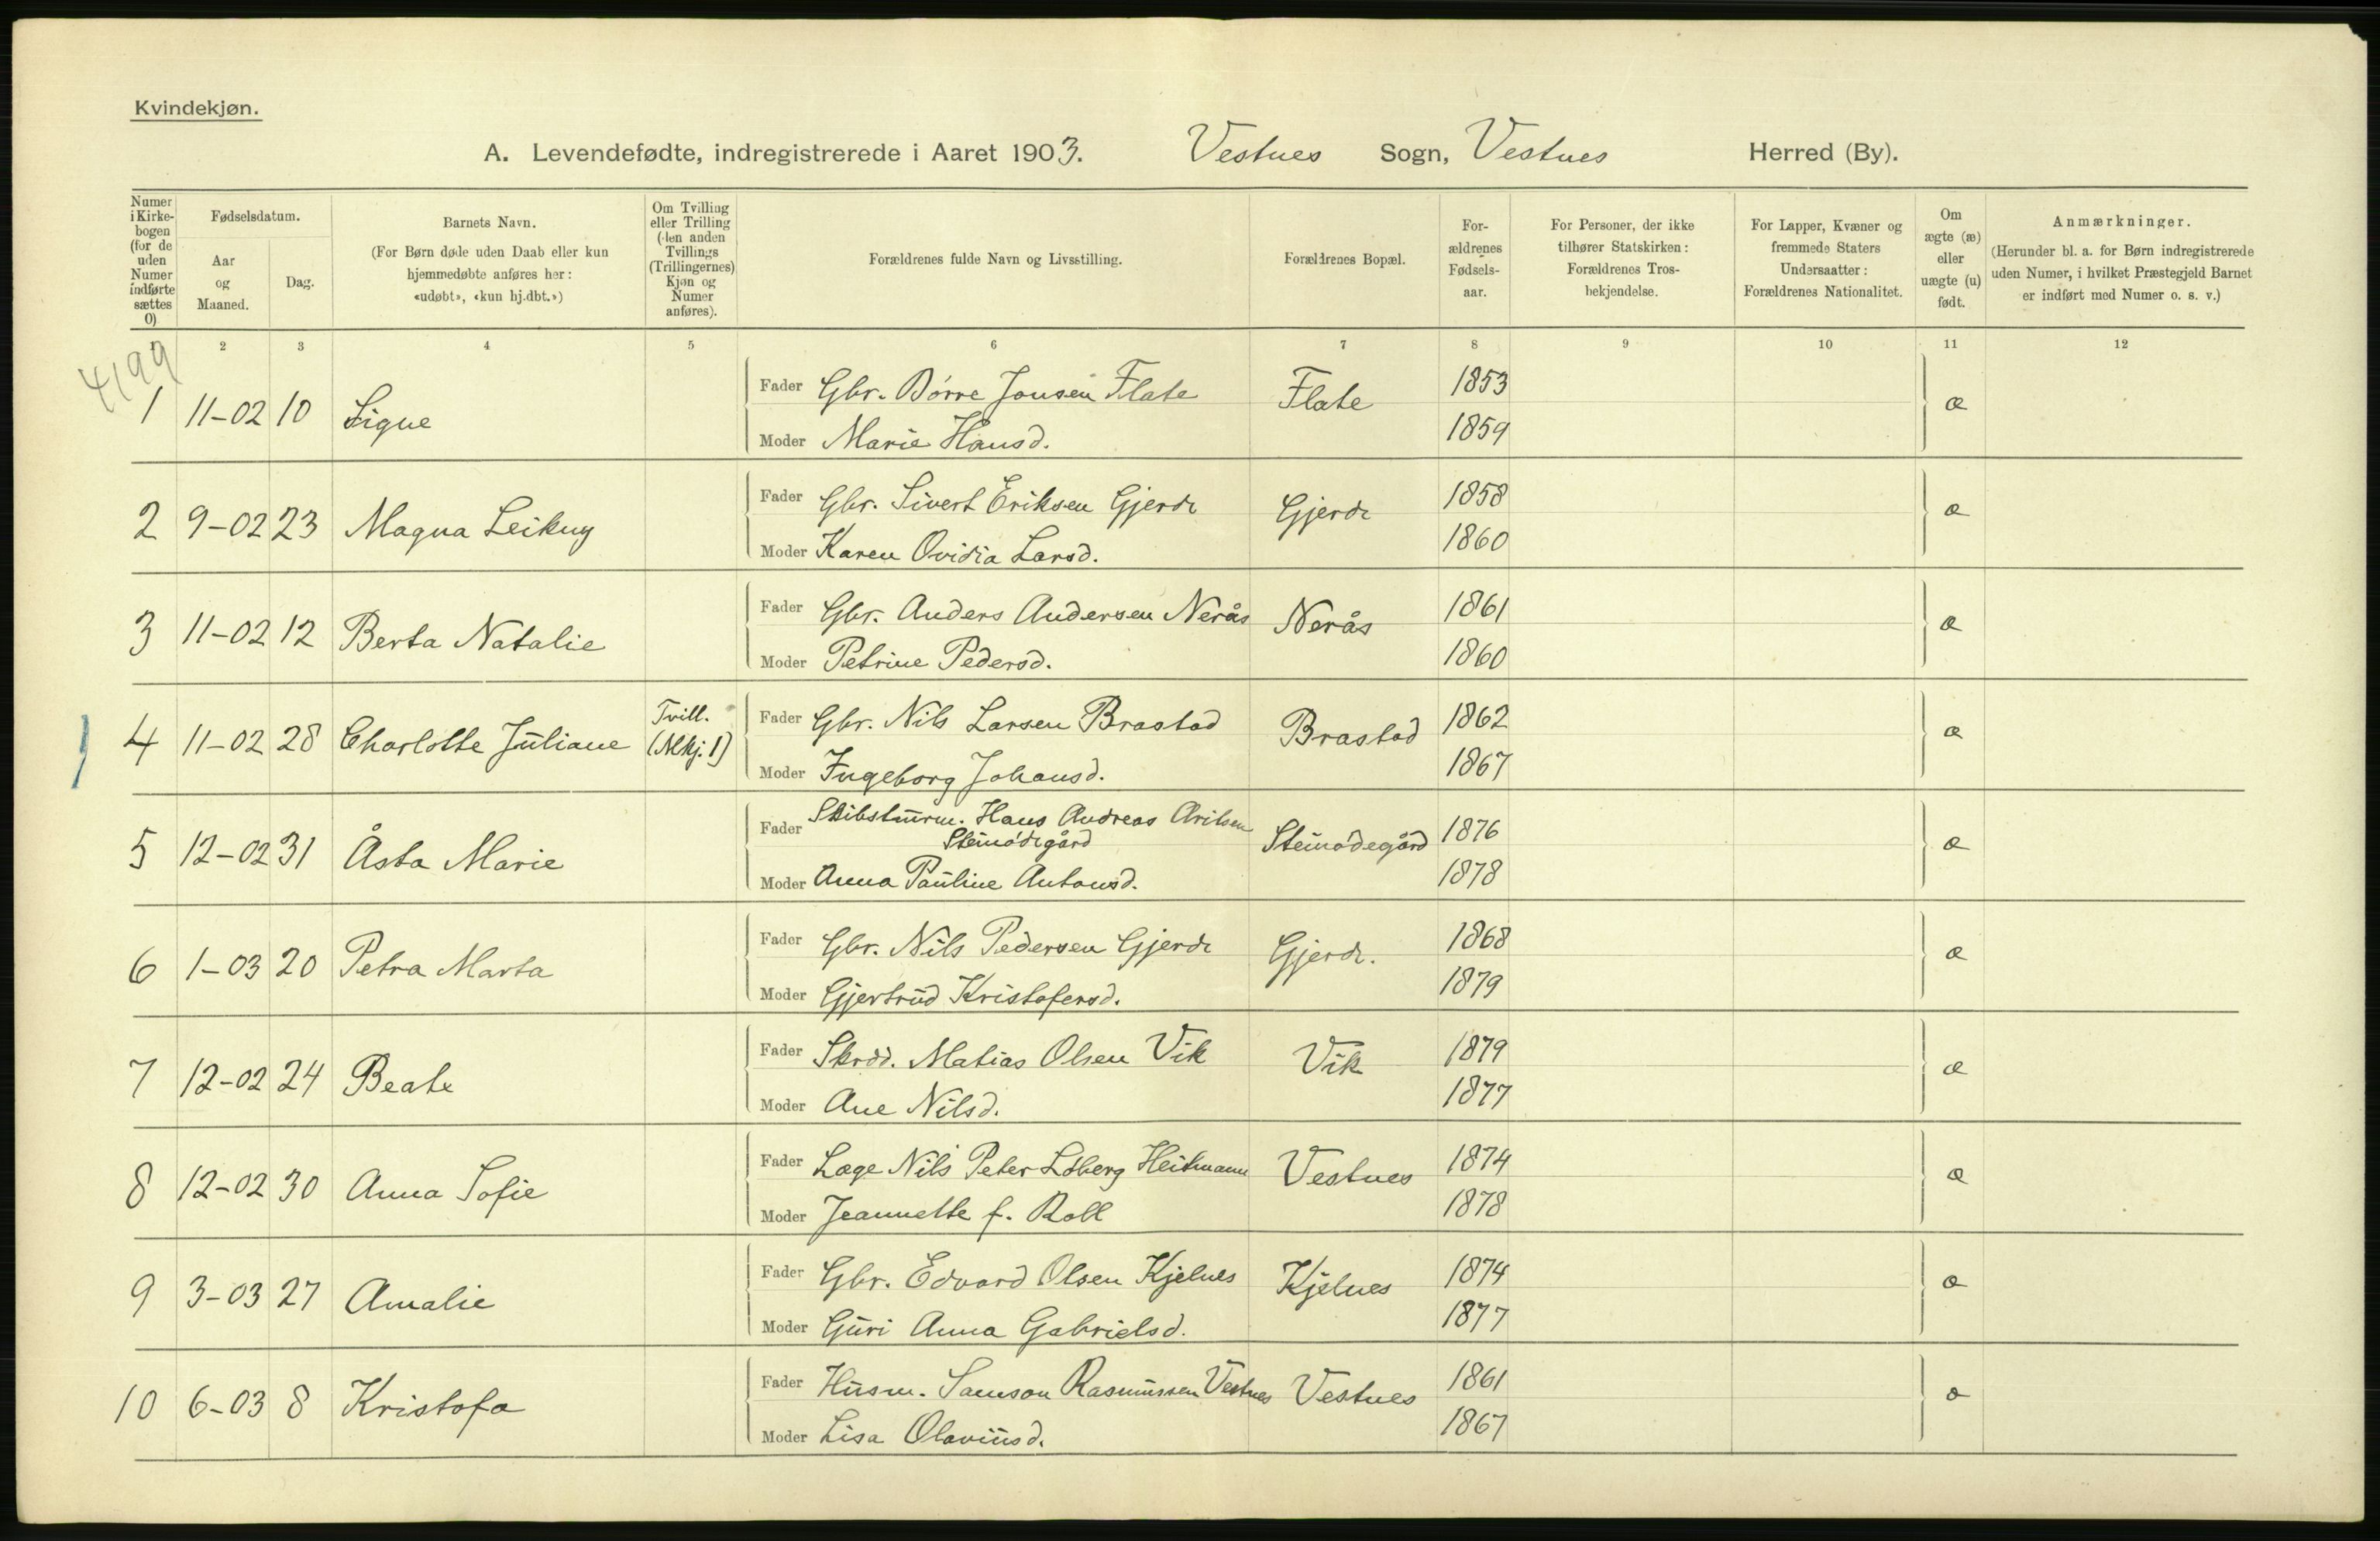 Kvindekjøn.
A. Levendefødte, indregistrerede i Aaret 1903. Vestnes Sogn, Vestnes Herred (By).
Numer i Kirke-bogen (for de uden Numer indførte sættes 0)
Fødselsdatum.
Aar og Maaned.
Dag.
Barnets Navn.
(For Børn døde uden Daab eller kun hjemmedøbte anføres her: «udøbt», «kun hj.dbt.»)
Om Tvilling eller Trilling (den anden Tvillings (Trillingernes) Kjøn og Numer anføres).
Forældrenes fulde Navn og Livsstilling.
Forældrenes Bopæl.
For-ældrenes Fødsels-aar.
For Personer, der ikke tilhører Statskirken: Forældrenes Tros-bekjendelse.
For Lapper, Kvæner og fremmede Staters Undersaatter: Forældrenes Nationalitet.
Om ægte (æ) eller uægte (u) født.
Anmærkninger.
(Herunder bl. a. for Børn indregistrerede uden Numer, i hvilket Præstegjeld Barnet er indført med Numer o. s. v.)
2 3 4 5 6 7 8 9 10 11 12
4199
1 11-02 10 Signe Fader Gbr. Børre Jonsen Flate Flate 1853 æ
Moder Marie Hansd. 1859
2 9-02 23 Magna Leikny Fader Gbr. Sivert Eriksen Gjerde Gjerde 1858 æ
Moder Karen Ovidia Larsd. 1860
3 11-02 12 Berta Natalie Fader Gbr. Anders Andersen Nerås Nerås 1861 æ
Moder Petrine Pedersd. 1860
4 11-02 28 Charlotte Juliane Tvill. (Mkj. 1) Fader Gbr. Nils Larsen Brastad Brastad 1862 æ
Moder Ingeborg Johansd. 1867
5 12-02 31 Åsta Marie Fader Skibstømrm. Hans Andreas Arilsen Steinødegård Steinødegård 1876 æ
Moder Anna Pauline Antonsd. 1878
6 1-03 20 Petra Marta Fader Gbr. Nils Pedersen Gjerde Gjerde. 1868 æ
Moder Gjertrud Kristofersd. 1879
7 12-02 24 Beate Fader Skrdd. Matias Olsen Vik Vik 1879 æ
Moder Ane Nilsd. 1877
8 12-02 30 Anna Sofie Fader Læge Nils Peter Loberg Heitmann Vestnes 1874 æ
Moder Jeannette f. Roll 1878
9 3-03 27 Amalie Fader Gbr. Edvard Olsen Kjelnes Kjelnes 1874 æ
Moder Guri Anna Gabrielsd. 1877
10 6-03 8 Kristofa Fader Husm. Samson Rasmussen Vestnes Vestnes 1861 æ
Moder Lisa Olaviusd. 1867